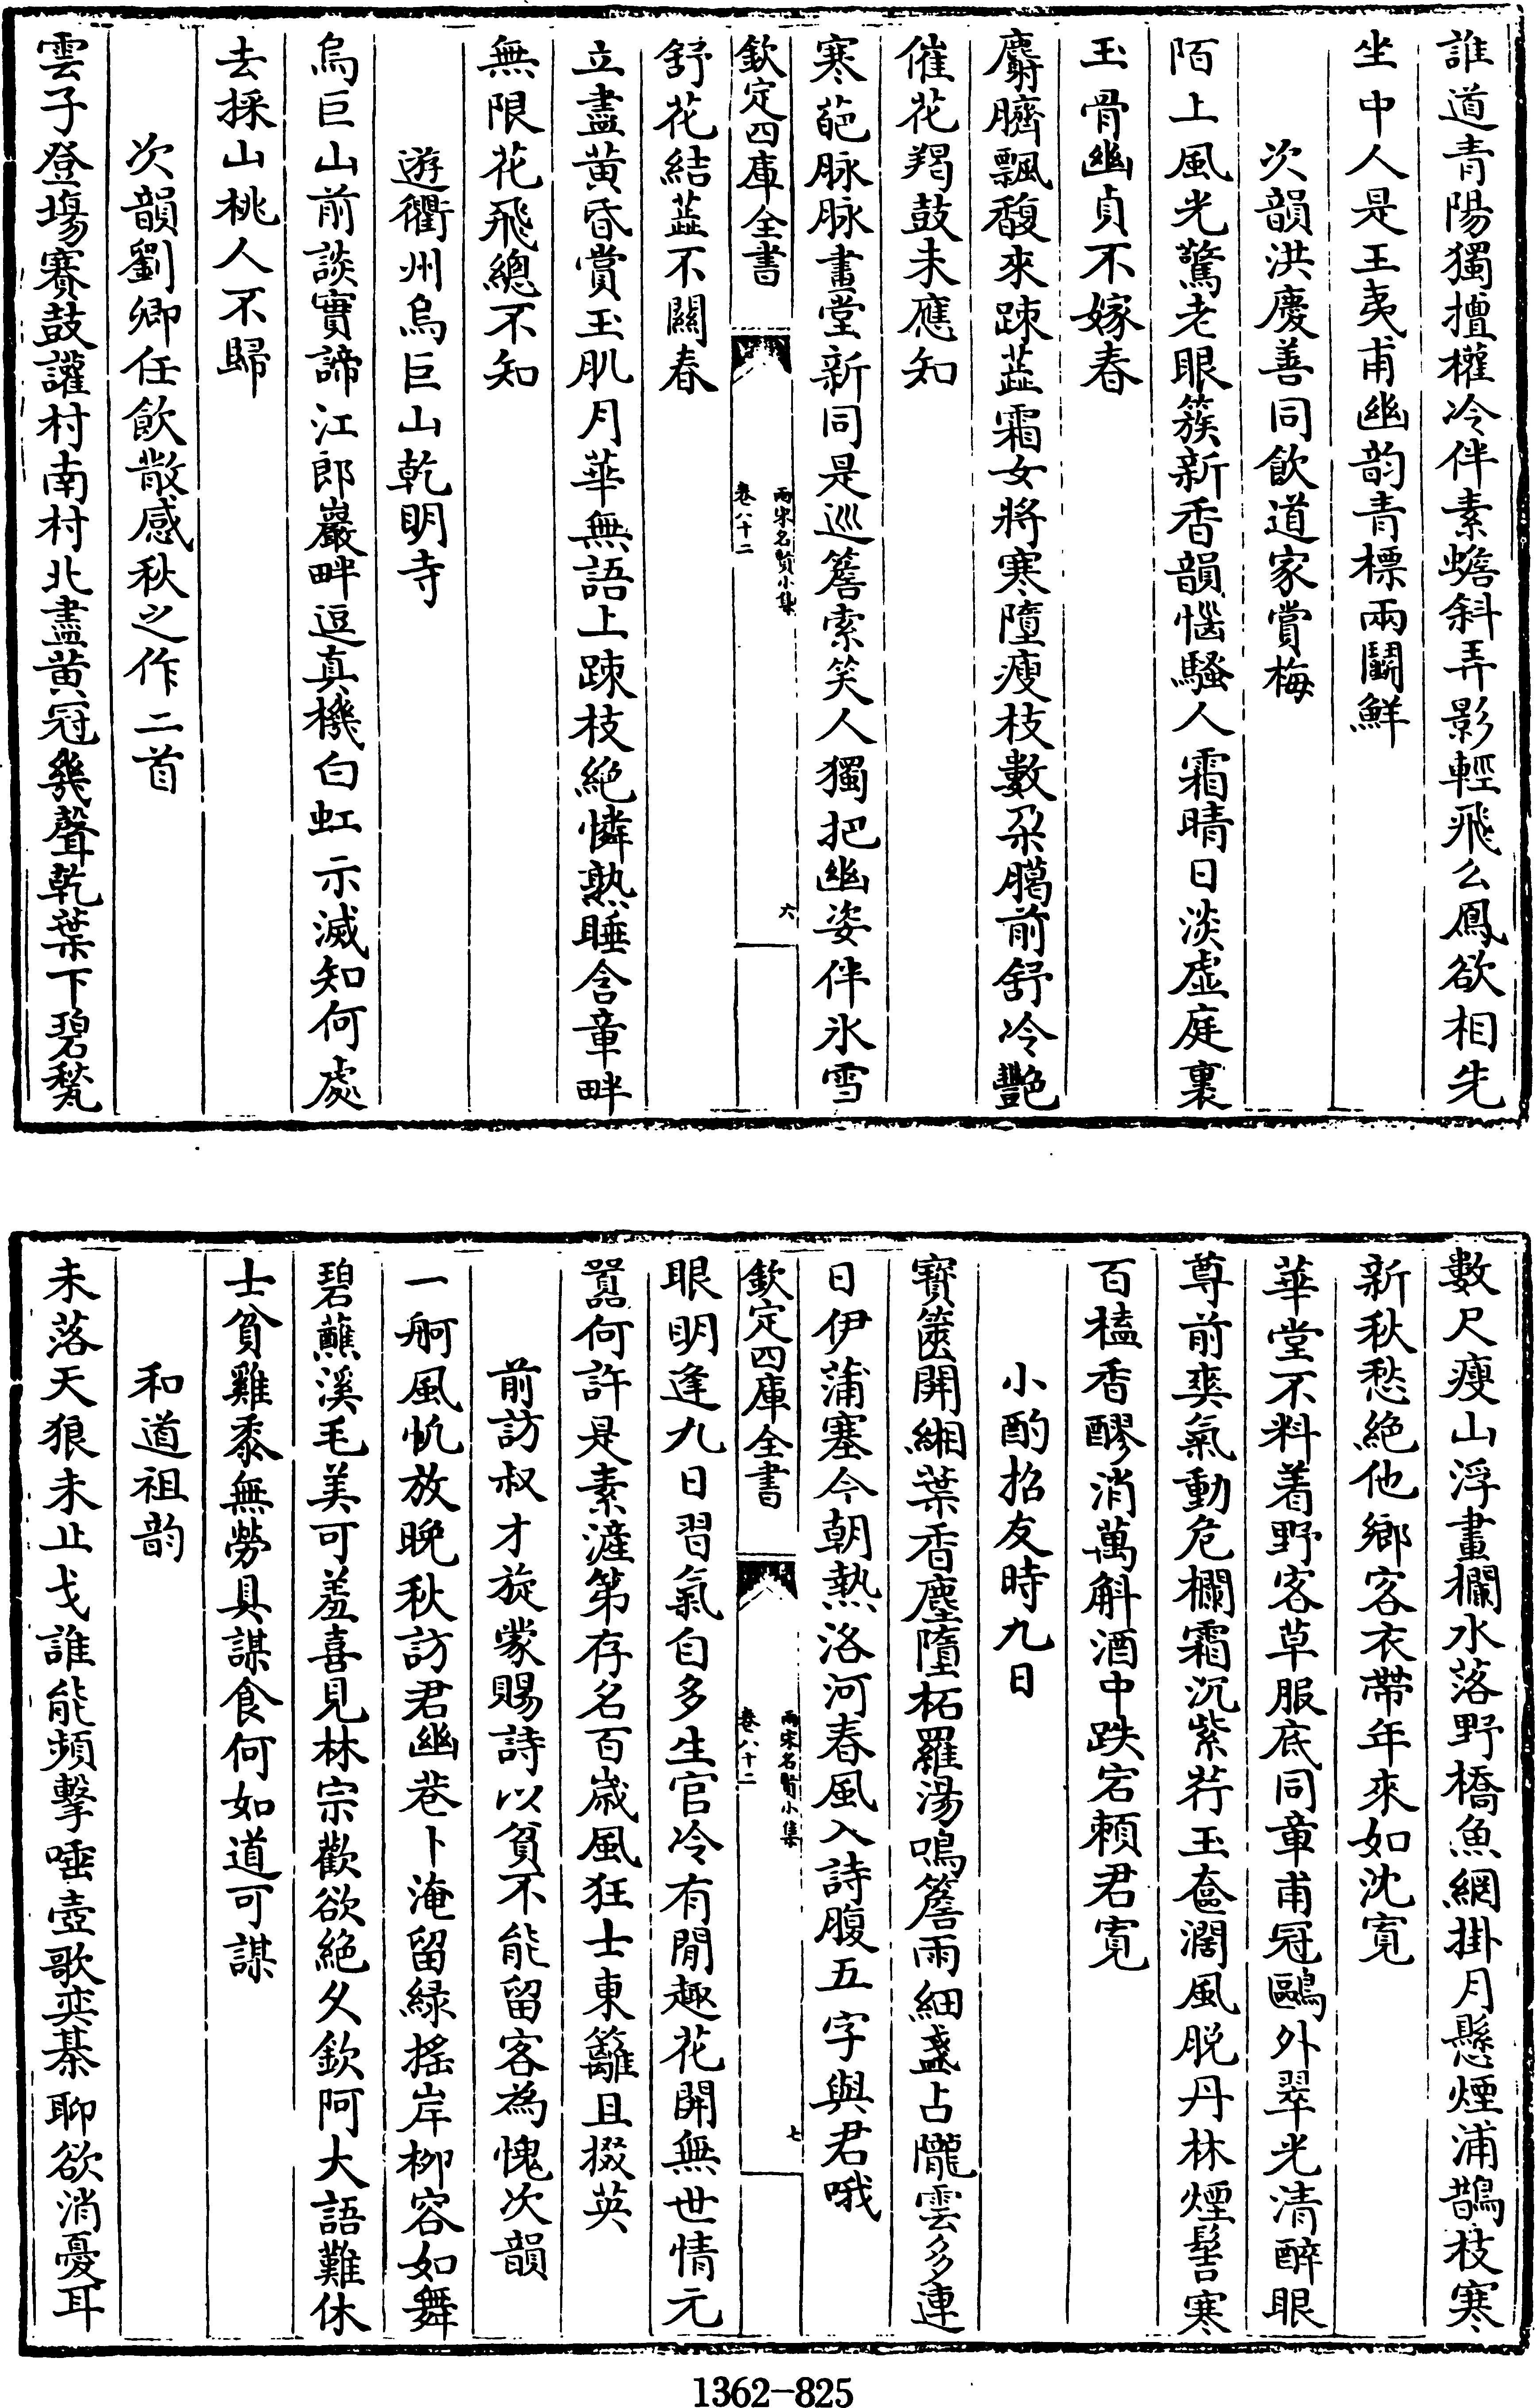 誰道青陽獨擅權冷伴素蟾斜弄影輕飛么鳳欲相先
坐中人是王夷甫幽韵青標兩鬭鮮
次韻洪慶善同飲道家賞梅
陌上風光驚老眼簇新香韻惱騷人霜晴日淡虚庭裏
玉骨幽貞不嫁春
麝臍飄馥來踈蕋霜女將寒墮瘦枝數朶臈前舒冷艷
催花羯鼓未應知
寒葩脉脉畫堂新同是巡簷索笑人獨把幽姿伴氷雪
欽定四庫全書
兩宋名賢小集
卷八十二
六
舒花結蕋不關春
立盡黄昏賞玉肌月華無語上踈枝絶憐熟睡含章畔
無限花飛總不知
遊衢州烏巨山乾明寺
烏巨山前談實諦江郎巖畔逗真機白虹示滅知何處
去採山桃人不歸
次韻劉卿任飲散感秋之作二首
雲子登塲賽鼓讙村南村北盡黄冠幾聲乾葉下碧甃
數尺瘦山浮畫欄水落野橋魚網掛月懸煙浦鵲枝寒
新秋愁絶他鄉客衣帶年來如沈寛
華堂不料着野客草服底同章甫冠鷗外翠光清醉眼
尊前爽氣動危欄霜沉紫荇玉奩濶風脱丹林煙髻寒
百榼香醪消萬斛酒中跌宕頼君寛
小酌招友時九日
寳篋開緗葉香塵墮柘羅湯鳴簷雨細盞占隴雲多連
日伊蒲塞今朝熱洛河春風入詩腹五字與君哦
欽定四庫全書
兩宋名賢小集
卷八十二
七
眼明逢九日習氣自多生官冷有閒趣花開無世情元
嚣何許是素滻第存名百嵗風狂士東籬且掇英
前訪叔才旋蒙賜詩以貧不能留客為愧次韻
一舸風帆放晩秋訪君幽巷卜淹留緑摇岸栁容如舞
碧蘸溪毛美可羞喜見林宗歡欲絶久欽阿大語難休
士貧雞黍無勞具謀食何如道可謀
和道祖韵
未落天狼未止戈誰能頻擊唾壺歌奕棊聊欲消憂耳
1362-825